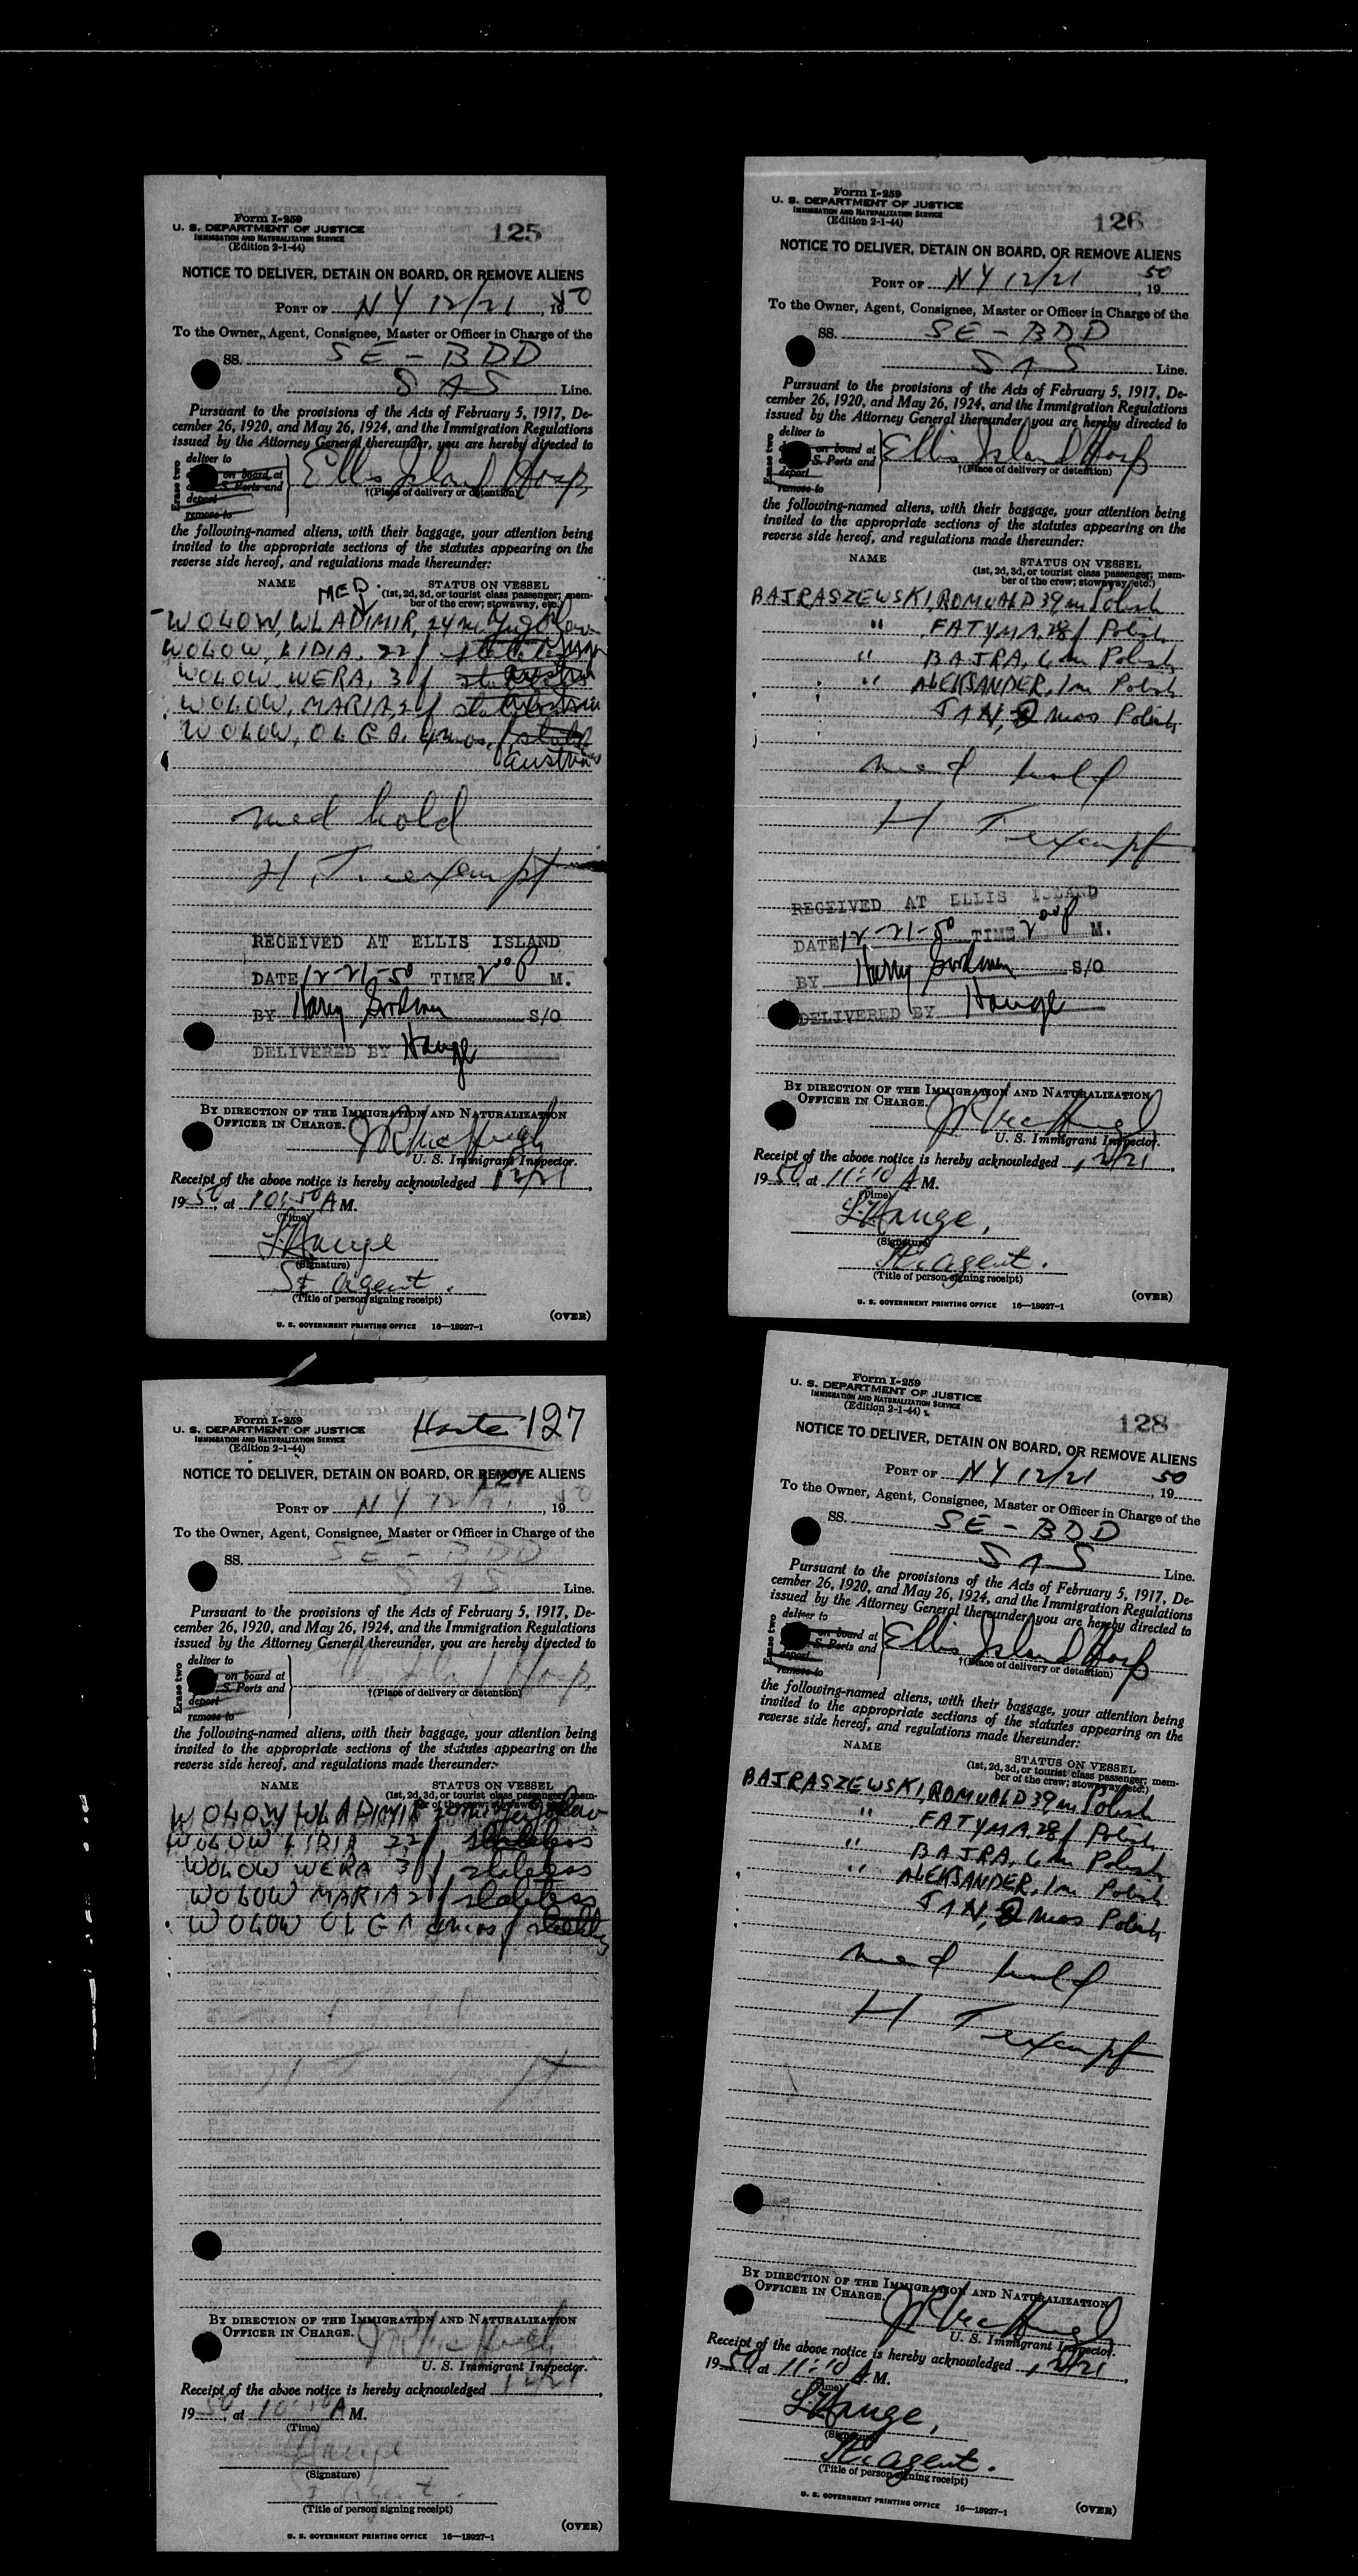 Form I-259
U. S. DEPARTMENT OF JUSTICE
IMMIGRATION AND NATURALIZATION SERVICE
(Edition 2-1-44)
125
NOTICE TO DELIVER, DETAIN ON BOARD, OR REMOVE ALIENS
PORT OF NY 12/21, 1950
To the Owner, Agent, Consignee, Master or Officer in Charge of the
SS. SE-BDD
SAS Line.
Pursuant to the provisions of the Acts of February 5, 1917, De-
cember 26, 1920, and May 26, 1924, and the Immigration Regulations
issued by the Attorney General thereunder, you are hereby directed to
Erase two
deliver to
on board at
S. Ports and
deport
remove to
Ellis Island Hosp
†(Place of delivery or detention)
the following-named aliens, with their baggage, your attention being
invited to the appropriate sections of the statutes appearing on the
reverse side hereof, and regulations made thereunder:
NAME MED. STATUS ON VESSEL
(1st, 2d, 3d, or tourist class passenger; mem-
ber of the crew; stowaway, etc.)
WOLOW, WLADIMIR, 24 m Yugoslav
WOLOW, LIDIA. 22 f
WOLOW, WERA, 3 f
WOLOW, MARIA, 2 f
WOLOW, OLGA. 4 mos. f
Austrian
med hold
H. T. exempt
RECEIVED AT ELLIS ISLAND
DATE 12-21-50 TIME 2 00 P M.
BY Harry S/O
DELIVERED BY Hauge
BY DIRECTION OF THE IMMIGRATION AND NATURALIZATION
OFFICER IN CHARGE.
U. S. Immigrant Inspector.
Receipt of the above notice is hereby acknowledged 12/21,
1950, at 10:50 A M.
(Time)
L Hauge
(Signature)
St agent.
(Title of person signing receipt)
(OVER)
U. S. GOVERNMENT PRINTING OFFICE 16—18927-1
Form I-259
U. S. DEPARTMENT OF JUSTICE
IMMIGRATION AND NATURALIZATION SERVICE
(Edition 2-1-44)
126
NOTICE TO DELIVER, DETAIN ON BOARD, OR REMOVE ALIENS
PORT OF NY 12/21, 1950
To the Owner, Agent, Consignee, Master or Officer in Charge of the
SS. SE-BDD
SAS Line.
Pursuant to the provisions of the Acts of February 5, 1917, De-
cember 26, 1920, and May 26, 1924, and the Immigration Regulations
issued by the Attorney General thereunder, you are hereby directed to
Erase two
deliver to
on board at
S. Ports and
deport
remove to
Ellis Island Hosp
†(Place of delivery or detention)
the following-named aliens, with their baggage, your attention being
invited to the appropriate sections of the statutes appearing on the
reverse side hereof, and regulations made thereunder:
NAME STATUS ON VESSEL
(1st, 2d, 3d, or tourist class passenger; mem-
ber of the crew; stowaway, etc.)
BAJRASZEWSKI, ROMUALD 39 m Polish
" FATYMA. 28 f Polish
" BAJRA, 4 m Polish
" ALEKSANDER, 1 m Polish
JAN, 2 mos Polish
med hold
H T exempt
RECEIVED AT ELLIS ISLAND
DATE 12-21-50 TIME 2 00 P M.
BY Harry S/O
DELIVERED BY Hauge
BY DIRECTION OF THE IMMIGRATION AND NATURALIZATION
OFFICER IN CHARGE.
U. S. Immigrant Inspector.
Receipt of the above notice is hereby acknowledged 12/21,
1950, at 11:10 A M.
(Time)
L Hauge,
(Signature)
agent.
(Title of person signing receipt)
(OVER)
U. S. GOVERNMENT PRINTING OFFICE 16—18927-1
Form I-259
U. S. DEPARTMENT OF JUSTICE
IMMIGRATION AND NATURALIZATION SERVICE
(Edition 2-1-44)
127
NOTICE TO DELIVER, DETAIN ON BOARD, OR REMOVE ALIENS
PORT OF NY 12/21, 1950
To the Owner, Agent, Consignee, Master or Officer in Charge of the
SS. SE-BDD
SAS Line.
Pursuant to the provisions of the Acts of February 5, 1917, De-
cember 26, 1920, and May 26, 1924, and the Immigration Regulations
issued by the Attorney General thereunder, you are hereby directed to
Erase two
deliver to
on board at
S. Ports and
deport
remove to
Hosp
†(Place of delivery or detention)
the following-named aliens, with their baggage, your attention being
invited to the appropriate sections of the statutes appearing on the
reverse side hereof, and regulations made thereunder:
NAME STATUS ON VESSEL
(1st, 2d, 3d, or tourist class passenger; mem-
ber of the crew; stowaway, etc.)
WOLOW WLADIMIR 24 m Yugoslav
WOLOW LIDIA 22 f stateless
WOLOW WERA 3 f stateless
WOLOW MARIA 2 f stateless
WOLOW OLGA 4 mos f
BY DIRECTION OF THE IMMIGRATION AND NATURALIZATION
OFFICER IN CHARGE.
U. S. Immigrant Inspector.
Receipt of the above notice is hereby acknowledged 12/21,
1950, at 10:50 A M.
(Time)
Hauge
(Signature)
(Title of person signing receipt)
(OVER)
U. S. GOVERNMENT PRINTING OFFICE 16—18927-1
Form I-259
U. S. DEPARTMENT OF JUSTICE
IMMIGRATION AND NATURALIZATION SERVICE
(Edition 2-1-44)
128
NOTICE TO DELIVER, DETAIN ON BOARD, OR REMOVE ALIENS
PORT OF NY 12/21, 1950
To the Owner, Agent, Consignee, Master or Officer in Charge of the
SS. SE-BDD
SAS Line.
Pursuant to the provisions of the Acts of February 5, 1917, De-
cember 26, 1920, and May 26, 1924, and the Immigration Regulations
issued by the Attorney General thereunder, you are hereby directed to
Erase two
deliver to
on board at
S. Ports and
deport
remove to
Ellis Island Hosp
†(Place of delivery or detention)
the following-named aliens, with their baggage, your attention being
invited to the appropriate sections of the statutes appearing on the
reverse side hereof, and regulations made thereunder:
NAME STATUS ON VESSEL
(1st, 2d, 3d, or tourist class passenger; mem-
ber of the crew; stowaway, etc.)
BAJRASZEWSKI, ROMUALD 39 m Polish
" FATYMA. 28 f Polish
" BAJRA, 4 m Polish
" ALEKSANDER, 1 m Polish
JAN, 2 mos Polish
med hold
H T exempt
BY DIRECTION OF THE IMMIGRATION AND NATURALIZATION
OFFICER IN CHARGE.
U. S. Immigrant Inspector.
Receipt of the above notice is hereby acknowledged 12/21,
1950, at 11:10 A M.
(Time)
L Hauge,
(Signature)
agent.
(Title of person signing receipt)
(OVER)
U. S. GOVERNMENT PRINTING OFFICE 16—18927-1